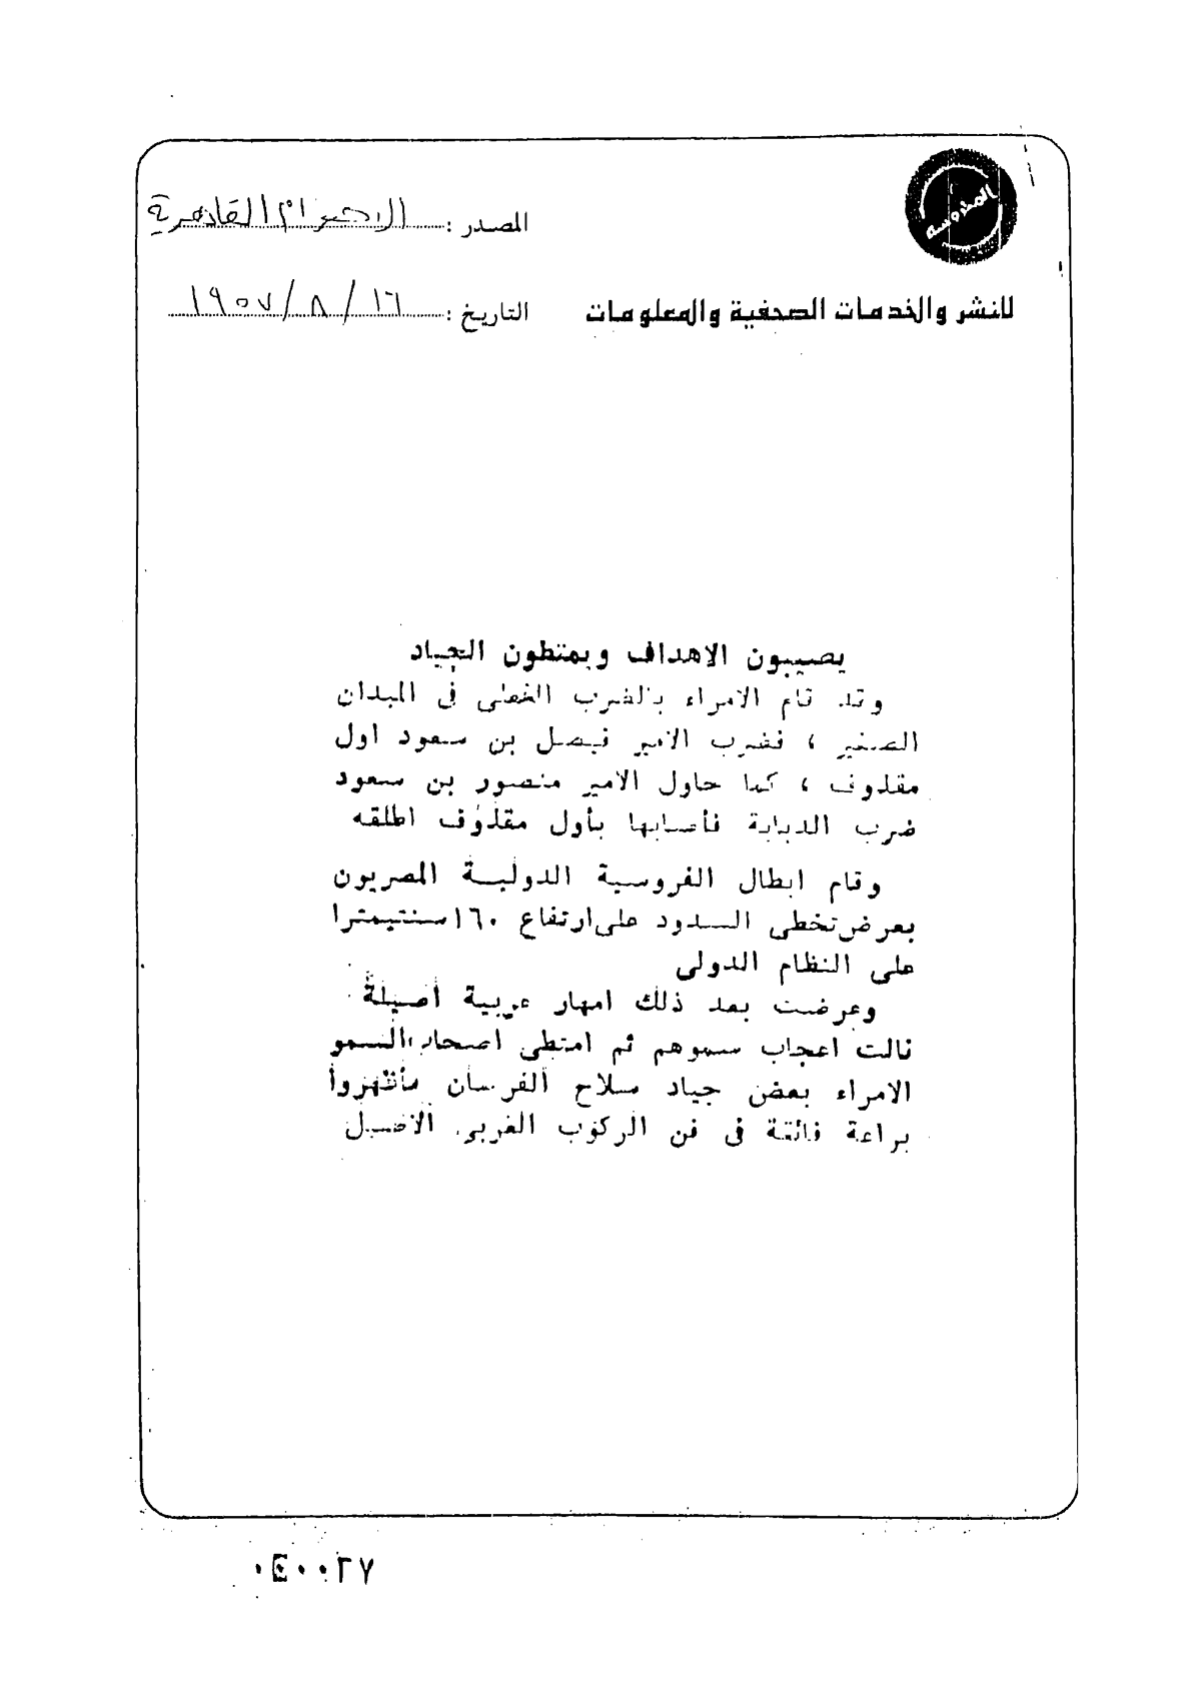 المحروسة
المصدر : الاهرام القاهرية
للنشر والخدمات الصحفية والمعلومات
التاريخ : ١٦ / ٨ / ١٩٥٧
يصيبون الاهداف ويمتطون الجياد
وقد قام الامراء بالضرب الخطى فى الميدان
الصغير ، فضرب الامير فيصل بن سعود اول
مقذوف ، كما حاول الامير منصور بن سعود
ضرب الدبابة فأصابها بأول مقذوف اطلقه
وقام ابطال الفروسية الدولية المصريون
بعرض تخطى السدود على ارتفاع ١٦٠ سنتيمترا
على النظام الدولى
وعرضت بعد ذلك امهار عربية أصيلة
نالت اعجاب سموهم ثم امتطى اصحاب السمو
الامراء بعض جياد سلاح الفرسان فأظهروا
براعة فائقة فى فن الركوب العربى الاصيل
٠٤٠٠٢٧